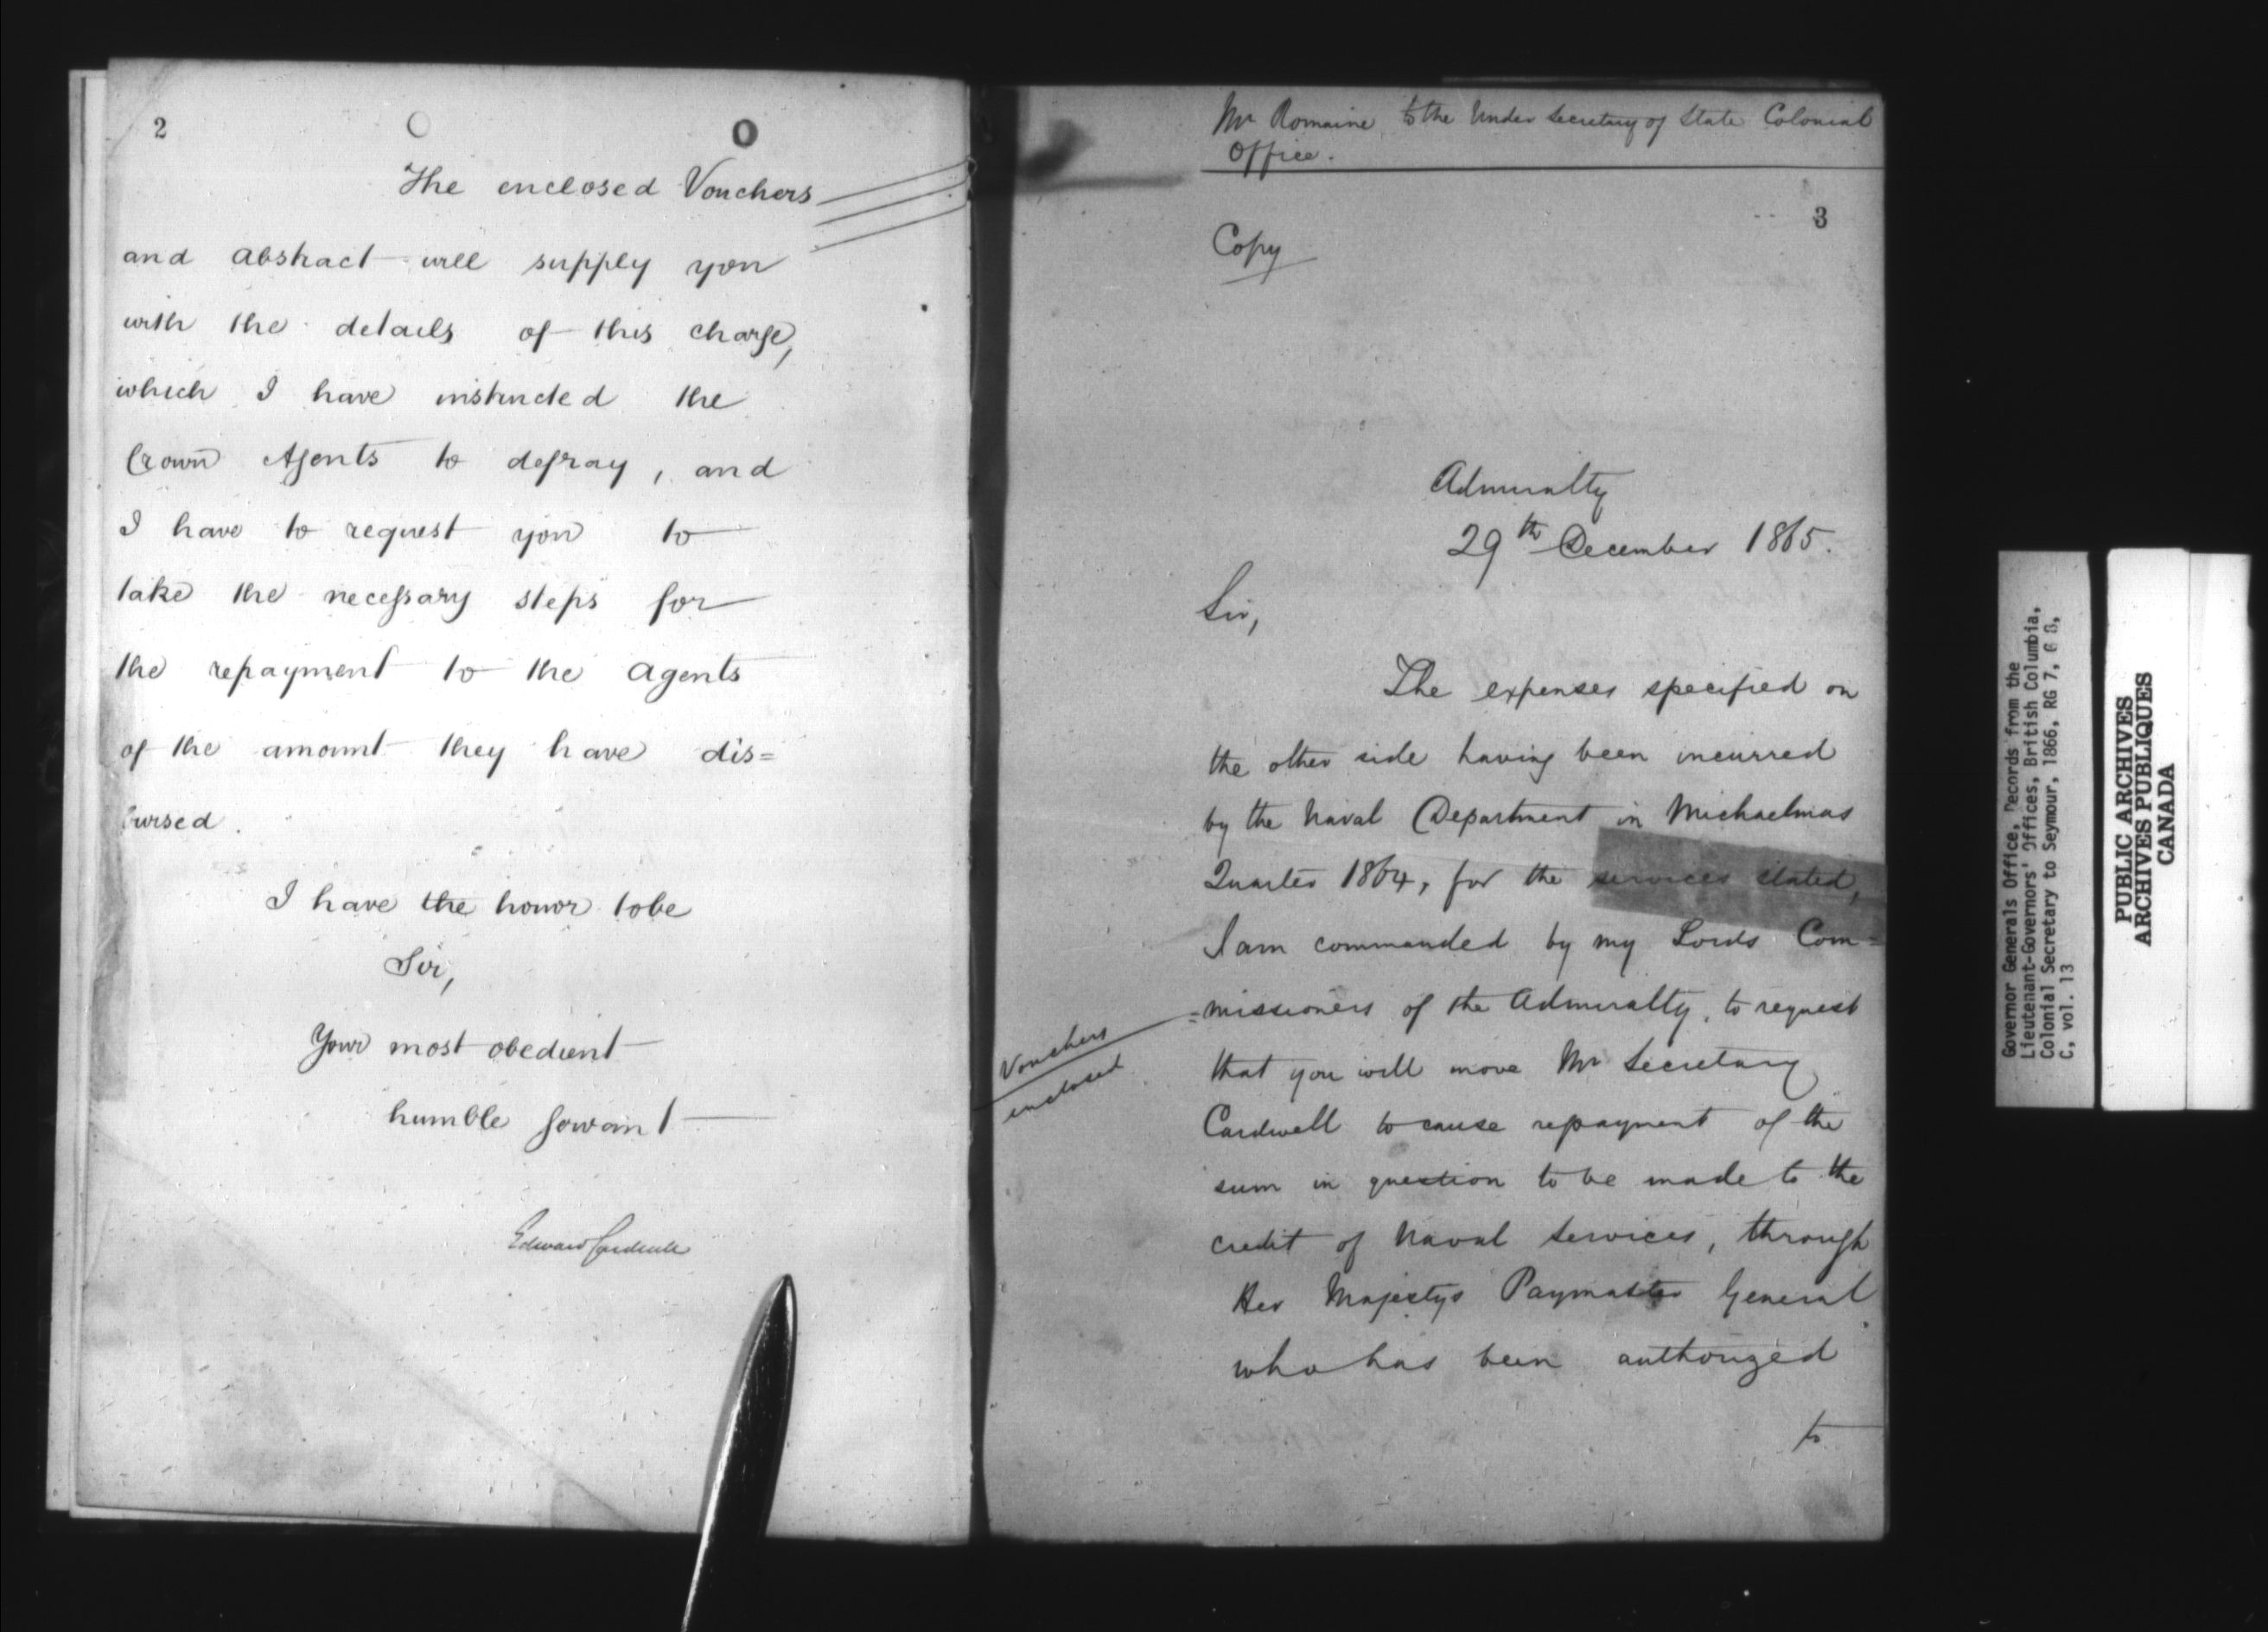 2
The enclosed Vouchers
and abstract will supply you
with the details of this charge,
which I have instructed the
Crown Agents to defray, and
I have to request you to
take the necessary steps for
the repayment to the Agents
of the amount they have dis=
bursed.
I have the honor to be
Sir,
Your most obedient
humble Servant
Edward Cardwell
Mr Romaine to the Under Secretary of State Colonial
Office.
3
Copy
Admiralty
29th December 1865.
Sir,
The expenses specified on
the other side having been incurred
by the Naval Department in Michaelmas
Quarter 1864, for the services stated,
I am commanded by my Lords Com=
=missioners of the Admiralty, to request
that you will move Mr Secretary
Cardwell to cause repayment of the
sum in question to be made to the
credit of Naval Services, through
Her Majestys Paymaster General
who has been authorized
to
Vouchers
enclosed
Governor Generals Office, Records from the
Lieutenant-Governors' Offices, British Columbia,
Colonial Secretary to Seymour, 1866, RG 7, G 8,
C, vol. 13
PUBLIC ARCHIVES
ARCHIVES PUBLIQUES
CANADA